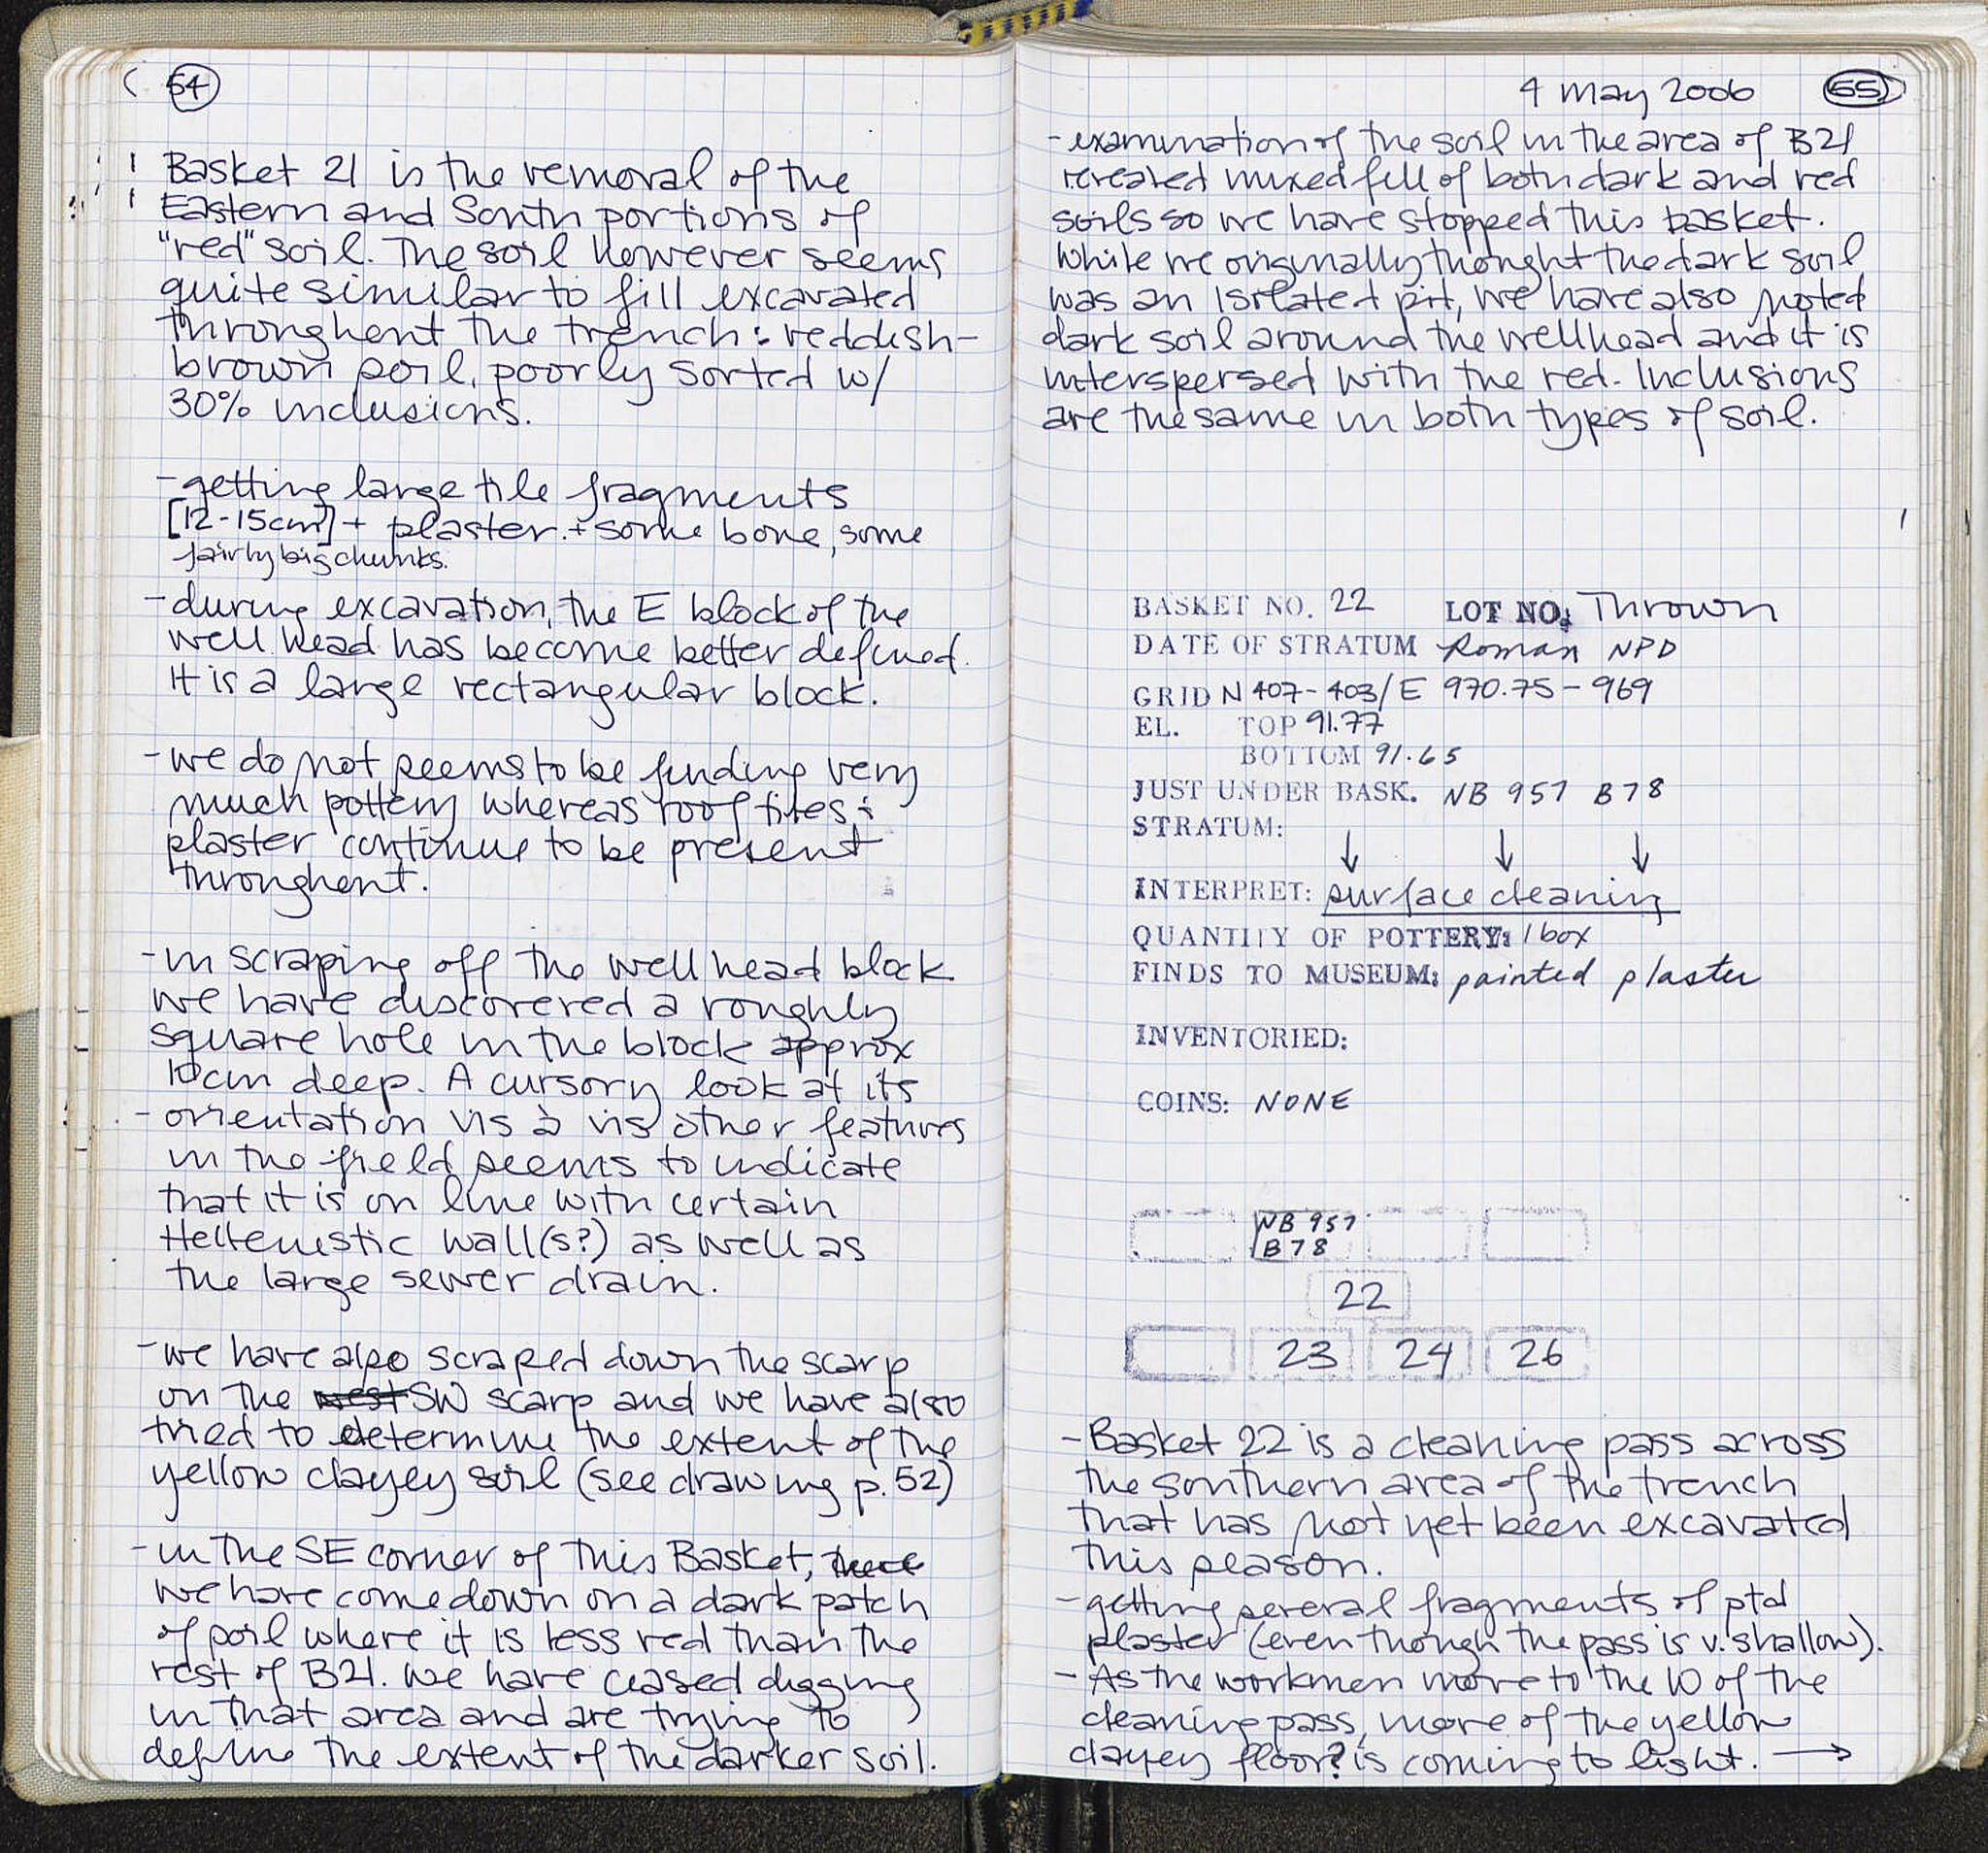 54
Basket 21 is the removal of the
Eastern and South portions of
"red" soil. The soil however seems
quite similar to fill excavated
throughout the trench: reddish-
brown soil, poorly sorted w/
30% inclusions.
- getting large tile fragments
[12-15cm] + plaster + some bone, some
fairly big chunks.
- during excavation, the E block of the
well head has become better defined.
It is a large rectangular block.
- we do not seems to be finding very
much pottery whereas roof tiles +
plaster continue to be present
throughout.
- in scraping off the well head block
we have discovered a roughly
square hole in the block approx
10cm deep. A cursory look at its
- orientation vis à vis other features
in the field seems to indicate
that it is on line with certain
Hellenistic wall(s?) as well as
the large sewer drain.
- we have also scraped down the scarp
on the west SW scarp and we have also
tried to determine the extent of the
yellow clayey soil (see drawing p. 52)
- in the SE corner of this Basket, there
we have come down on a dark patch
of soil where it is less red than the
rest of B21. We have ceased digging
in that area and are trying to
define the extent of the darker soil.
4 May 2006 55
- examination of the soil in the area of B21
revealed mixed fill of both dark and red
soils so we have stopped this basket.
While we originally thought the dark soil
was an isolated pit, we have also noted
dark soil around the wellhead and it is
interspersed with the red. Inclusions
are the same in both types of soil.
BASKET NO. 22 LOT NO: Thrown
DATE OF STRATUM Roman NPD
GRID N 407-403/E 970.75-969
EL. TOP 91.77
BOTTOM 91.65
JUST UNDER BASK. NB 957 B78
STRATUM:
↓ ↓ ↓
INTERPRET: surface cleaning
QUANTITY OF POTTERY: 1 box
FINDS TO MUSEUM: painted plaster
INVENTORIED:
COINS: NONE
NB 957
B78
22
23 24 26
- Basket 22 is a cleaning pass across
the southern area of the trench
that has not yet been excavated
this season.
- getting several fragments of ptd
plaster (even though the pass is v. shallow).
- As the workmen move to the W of the
cleaning pass, more of the yellow
clayey floor? is coming to light. →